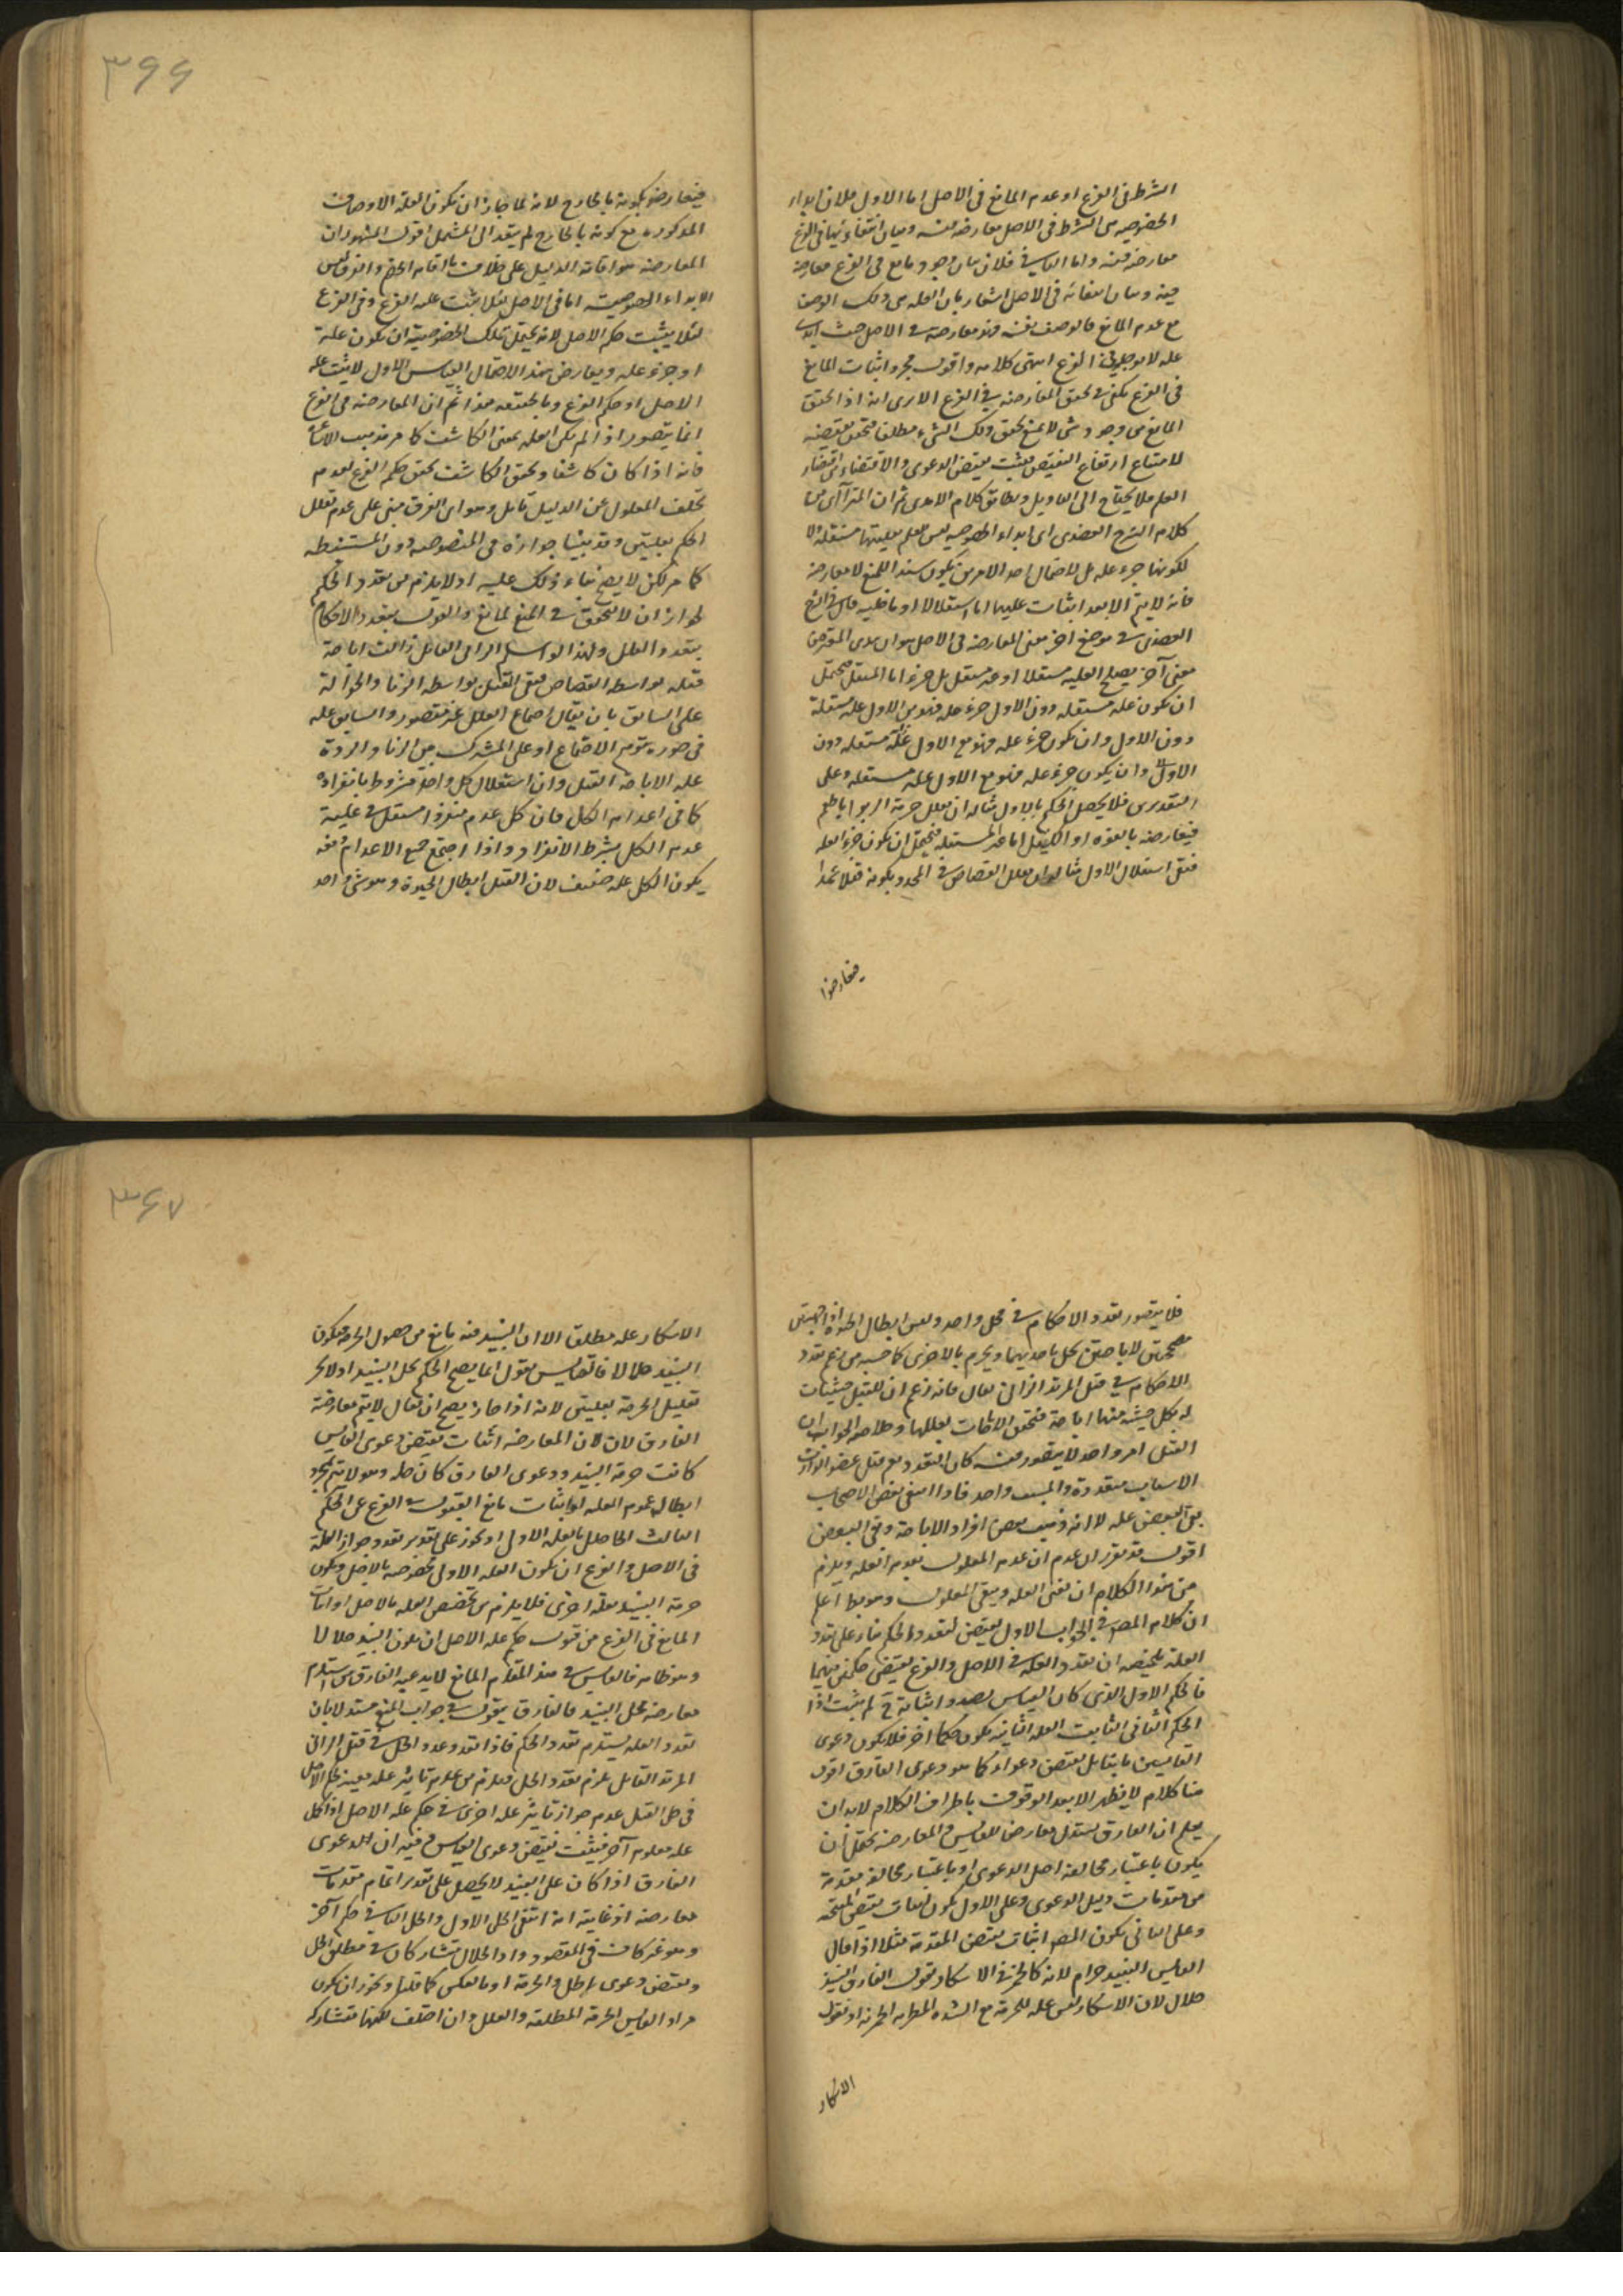 الشرط فى الفرع او عدم المانع فى الاصل اما الاول فلان ابداء
الخصوصيه التى الشرط فى الاصل معارضه فيه وبيان انتفائها فى الفرع
معارضه فيه واما الثانى فلان بيان وجود مانع فى الفرع معارضه
فيه وبيان انتفائه فى الاصل اشعار بان العله هى ذلك الوصف
مع عدم المانع فالوصف نفسه فهو معارضة فى الاصل حيث
عله لا يوجد فى الفرع انتهى كلامه واقول مجرد اثبات المانع
فى الفرع يكفى فى تحقق المعارضه فى الفرع الا يرى انه اذا تحقق
المانع من وجود شى لا يمنع تحقق ذلك الشى مطلقا فتحقق نقيضه
لامتناع ارتفاع النقيضين فيثبت نقيض الدعوى والاقتضاء
العلم فلا يحتاج الى التاويل ويطابق كلام الامدى ثم ان المترا آى من
كلام الشرح العضدى ان ابداء الخصوصيه ليس لعلم بعليتها مستقله لا
لكونها جزء عله بل لاحتمال احد الامرين فيكون سند المنع لا معارضه
فانه لا يتم الا بعد اثبات عليتها اما استقلالا او
العضدى فى موضع اخر معنى المعارضه فى الاصل هو ان يبدى المعترض
معنى آخر يصلح للعليه مستقلا او غير مستقل بل جزء اما المستقل فيحتمل
ان يكون عله مستقله دون الاول جزء عله فهو مع الاول عله مستقله
دون الاول وان يكون جزء عله فهو مع الاول عله مستقله دون
الاول وان يكون جزء عله فهو مع الاول عله مستقله وعلى
التقديرين فلا يحصل الحكم بالاول مثاله ان يعلل حرمة الربوا بالطعم
فيعارضه بالقوه او الكيل اما غير المستقله فيحتمل ان يكون جزء العله
فينفى استقلال الاول مثاله ان يعلل القصاص فى المحدد بكونه قتلا عمدا
فيعارضه
٣٦٦
فيعارضه بكونه بالجارح لانه لما جاز ان تكون العله الاوصاف
المذكوره مع كونه بالجارح لم يتعد الى المثقل اقول المشهور ان
المعارضه هو اقامة الدليل على خلاف ما اقام الخصم والفرق ليس
الا ابداء الخصوصية اما فى الاصل لئلا يثبت عله الفرع وفى الفرع
لئلا يثبت حكم الاصل لانه يحتمل تلك الخصوصية ان يكون علة
او جزء عله ويعارض بهذا الاحتمال القياس الاول لا يثبت عله
الاصل او حكم الفرع وما يحققه هذا ثم ان المعارضه فى الفرع
انما يتصور اذا لم يكن العله بمعنى الكاشف كما هو مذهب الاشاعره
فانه اذا كان كاشفا وتحقق الكاشف تحقق حكم الفرع لعدم
تخلف المعلول عن الدليل تامل وهو اى الفرق مبنى على عدم تعلل
الحكم بعليتين وقد بينا جوازه فى المنصوصه دون المستنبطه
كما مر لكن لا يصح بناء ذلك عليه اذ لا يلزم من تعدد الحكم
لجواز ان لا يتحقق فى المنع لمانع والقول بتعدد الاحكام
بتعدد العلل ولهذا لو اسلم الزانى القاتل زالت اباحة
قتله بواسطه القصاص فبقى القتل بواسطه الزنا والحوالة
على السابق بان يقال اجتماع العلل غير متصور والسابق عله
فى صوره توهم الاجتماع او على المشترك بين الزنا والردة
عله الاباحة القتل وان استقلال كل واحد مشروط بانفراده
كما فى اعدام الكل فان كل عدم منفردا مستقل فى علية
عدم الكل بشرط الانفراد واذا اجتمع جميع الاعدام
يكون الكل عله ضعيف لان القتل ابطال الحيوة وهو شى واحد
فلا يتصور تعدد الاحكام فى محل واحد وليس ابطال الحيوة
لاباحتين يحل باحديهما ويحرم بالاخرى كما حسبه من زعم تعدد
الاحكام فى قتل المرتد الزانى فقال فانه زعم ان للقتل حيثيات
له بكل حيثيه منها اباحة فتحقق الاباحات بعللها وخلاصه الجواب ان
القتل امر واحد لا يتصور فيه كان التعدد
الاسباب متعددة والمسبب واحد فاذا انتفى بعض الاسباب
بقى البعض عله لا انه ذهب بعض افراد الاباحة وبقى البعض
اقول قد تقرر ان عدم ان عدم المعلول بعدم العله ويلزم
من هذا الكلام ان تفنى العله ويبقى المعلول وهو بط اعلم
ان كلام المصر فى الجواب الاول يقتضى تعدد الحكم بناء على تعدد
العله تلخيصه ان تعدد العله فى الاصل والفرع يقتضى حكمين فيهما
فالحكم الاول الذى كان القياس بصدد اثباته لم يثبت اذا
الحكم الثانى الثابت العله الثانيه يكون حكما اخر فلا يكون دعوى
القايس ما يقابل نقيض دعواه كما هو دعوى الفارق اقول
هنا كلام لا يظهر الا بعد الوقوف باطراف الكلام لا بد ان
يعلم ان الفارق يستدل معارض للقايس والمعارضه يحتمل ان
يكون باعتبار مخالفة اصل الدعوى او باعتبار مخالفة مقدمة
من مقدمات دليل الدعوى وعلى الاول يكون اثبات نقيض النتيجه
وعلى الثانى يكون المصر اثبات نقيض المقدمة مثلا اذا قال
القايس النبيذ حرام لانه كالخمر فى الاسكار فيقول الفارق النبيذ
حلال لان الاسكار ليس عله للحرمة مع الشده المطربه الخمريه او نقول
الاسكار
٣٦٧
الاسكار عله مطلقا الا ان النبيذ فيه مانع من حصول الحرمة فيكون
النبيذ حلالا فالقايس يقول انما يصح الحكم بحل النبيذ اذ لا يجز
تعليل الحرمة بعليتين لانه اذا جاز يصح ان يقال لا يتم معارضة
الفارق لان لان المعارضه اثبات نقيض دعوى القايس
كانت حرمة النبيذ ودعوى الفارق كان حله وهو لا يتم بمجرد
ابطال عموم العله او اثبات مانع القبول فى الفرع عن الحكم
الثالث الحاصل بالعله الاولى او يجوز على تقدير تعدد جواز العلة
فى الاصل والفرع ان يكون العله الاولى مخصوصه بالاصل ويكون
حرمة النبيذ بعلة اخرى فلا يلزم من تخصيص العله بالاصل او اثبات
المانع فى الفرع من قبول حكم عله الاصل ان يكون النبيذ حلالا
وهو ظاهر فالقايس فى هذ المقام المانع لا يدعيه الفارق من استلزام
معارضه لحل النبيذ فالفارق يقول فى جواب المنع مستدلا بان
تعدد العله يستلزم تعدد الحكم فاذا تعدد وعدد الحل فى قتل الزانى
المرتد القاتل يلزم تعدد الحل فيلزم من عدم تاثير عله معينه لحكم الاصل
فى حل القتل عدم جواز تاثير عله اخرى فى حكم عله الاصل اذ لكل
عله معلوم آخر فيثبت نقيض دعوى القايس وفيه ان الدعوى
الفارق اذا كان على النبيذ لا يحصل على تقدير اتمام مقدمات
معارضه اذ غايته انه انتفى الحل الاول والحل الثانى حكم آخر
وهو غير كاف فى المقصود واذ الحلال مشاركان فى مطلق الحل
ونقيض دعوى الحل والحرمة او بالعكس كما قلنا ويجوز ان يكون
مراد القايس الحرمة المطلقه والعلل وان اختلف لكنها متشاركه